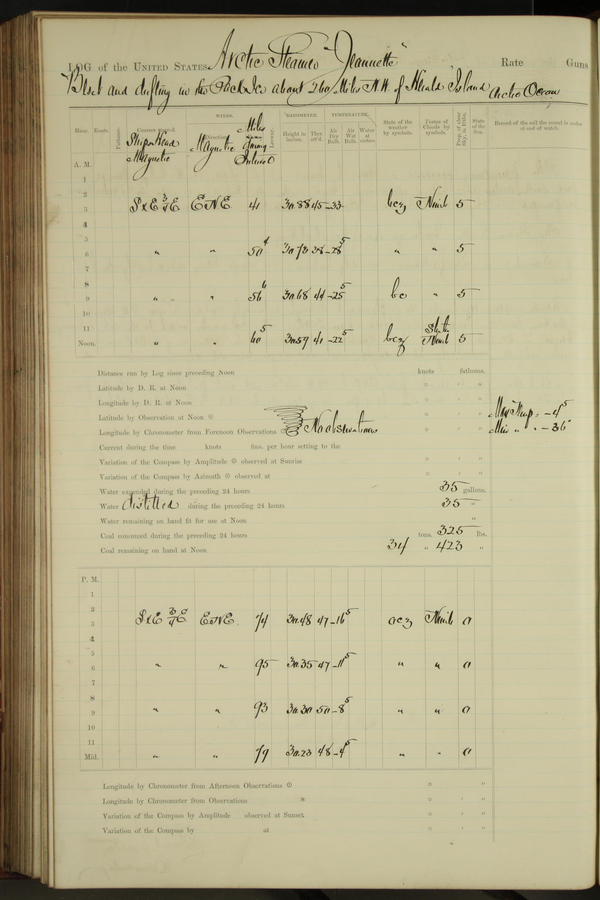 LOG of the UNITED STATES Arctic Steamer "Jeannette" Rate Guns
Beset and drifting in the Pack Ice about 260 Miles N.W. of Herald Island Arctic Ocean
Hour. Knots. Fathoms. Courses steered. WINDS. Direction. Leeway. BAROMETER. Height in inches. Ther. att'd. TEMPERATURE. Air Dry Bulb. Air Wet Bulb. Water at surface. State of the weather by symbols. Forms of Clouds by symbols. Prop. of clear Sky, in 10ths. State of the Sea. Record of the sail the vessel is under at end of watch.
Ship's Head Magnetic Magnetic Miles during
A. M.
1
2
3 S x E 3/4 E ENE 41 30.88 45 -33 bcz Nimb 5
4
5
6 " " 50 4 30.73 38 -28 5 " " 5
7
8
9 " " 56 6 30.68 44 -25 5 bc " 5
10
11
Noon. " " 60 5 30.59 41 -22 5 bcz Str. Nimb 5
Distance run by Log since preceding Noon knots fathoms.
Latitude by D. R. at Noon ° ' "
Longitude by D. R. at Noon ° ' "
Latitude by Observation at Noon ⊙ ° ' " Max Temp. -4 5
Longitude by Chronometer from Forenoon Observations ⊙ No observations ° ' " Min " " -36
Current during the time knots fms. per hour setting to the
Variation of the Compass by Amplitude ⊙ observed at Sunrise ° ' "
Variation of the Compass by Azimuth ⊙ observed at ° ' "
Water expended during the preceding 24 hours 35 gallons.
Water distilled during the preceding 24 hours 35 "
Water remaining on hand fit for use at Noon "
Coal consumed during the preceding 24 hours tons. 325 lbs.
Coal remaining on hand at Noon 34 " 423 "
P. M.
1
2
3 S x E 3/4 E ENE 74 30.48 47 -16 5 ocz Nimb 0
4
5
6 " " 95 30.35 47 -11 5 " " 0
7
8
9 " " 93 30.30 50 -8 5 " " 0
10
11
Mid. " " 79 30.23 48 -4 5 " " 0
Longitude by Chronometer from Afternoon Observations ⊙ ° ' "
Longitude by Chronometer from Observations * ° ' "
Variation of the Compass by Amplitude observed at Sunset ° ' "
Variation of the Compass by at ° ' "